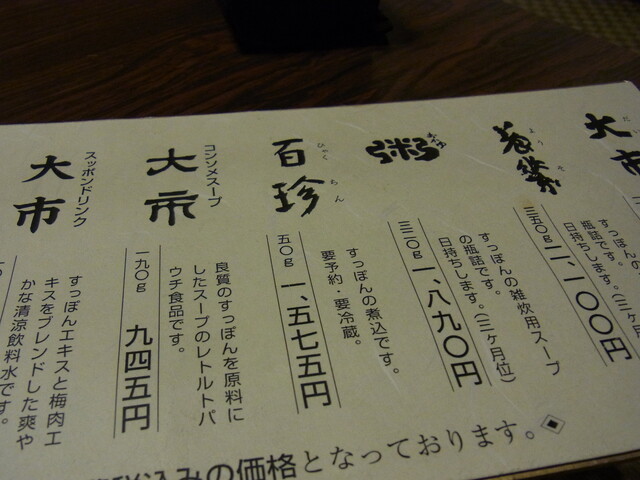 だい
大市
すっぽんの
瓶詰です。
日持ちします。(三
よう
養
そ
三五〇g 二、一〇〇円
すっぽんの雑炊用スープ
の瓶詰です。
日持ちします。(三ヶ月位)
粥
三二〇g 一、八九〇円
すっぽんの煮込です。
要予約・要冷蔵。
百珍
ひゃくちん
五〇g 一、五七五円
良質のすっぽんを原料に
したスープのレトルトパ
ウチ食品です。
コンソメスープ
大市
一九〇g 九四五円
すっぽんエキスと梅肉エ
キスをブレンドした爽や
かな清涼飲料水です。
スッポンドリンク
大市
込みの価格となっております。